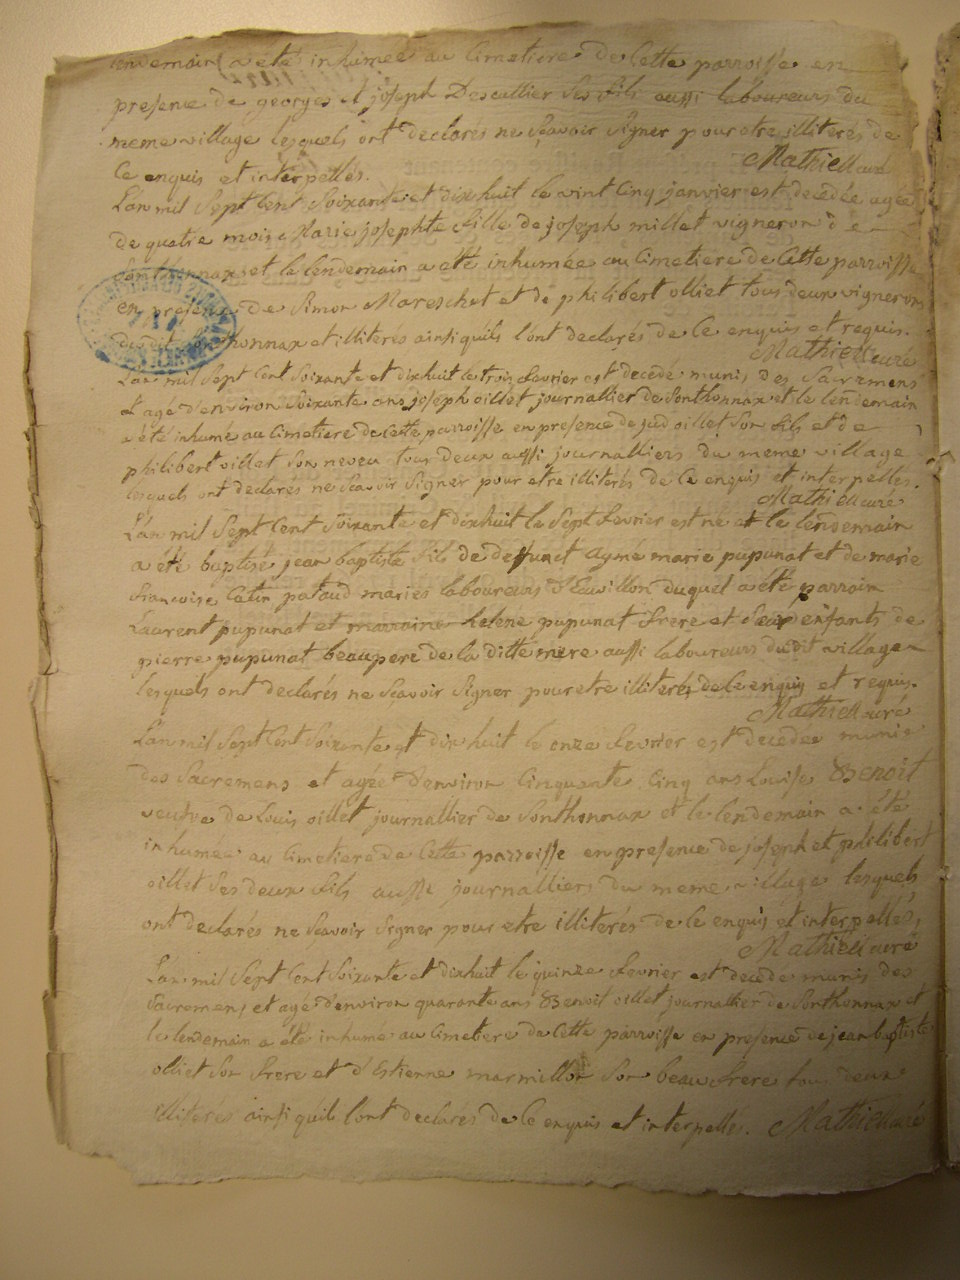 lendemain a été inhumée au Cimetiere de Cette parroisse en
presence de georges et joseph Descullier Ses fils aussi laboureurs du
meme village lesquels ont declarés ne Scavoir Signer pour etre illiterés de
Ce enquis et interpellés. Mathieu curé
L'an mil Sept Cent Soixante et dixhuit le vint Cinq janvier est decedée agée
de quatre mois Marie josephte fille de joseph millet vigneron de
Sonthonnax et le lendemain a été inhumée au Cimetiere de Cette parroisse
en presence de Simon Mareschet et de philibert olliet tous deux vignerons
dudit Sonthonnax et illiterés ainsi quils l'ont declarés de Ce enquis et requis.
Mathieu curé
L'an mil Sept Cent Soixante et dixhuit le trois fevrier est decedé munis des Sacremens
et agé d'environ Soixante ans joseph oillet journallier de Sonthonnax et le lendemain
a été inhumé au Cimetiere de Cette parroisse en presence de jud oillet Son fils et de
philibert oillet Son neveu tous deux aussi journalliers du meme village
lesquels ont declarés ne Scavoir Signer pour etre illiterés de Ce enquis et interpelles.
Mathieu curé
L'an mil Sept Cent Soixante et dixhuit le Sept fevrier est né et le lendemain
a été baptisé jean baptiste fils de deffunct aymé marie pupunat et de marie
francoise Catin pataud mariés laboureurs d'Heuvillon duquel a été parrain
Laurent pupunat et marraine helene pupunat frere et Seur enfants de
pierre pupunat beaupere de la ditte mere aussi laboureurs dudit village
lesquels ont declarés ne Scavoir Signer pour etre illiterés de Ce enquis et requis.
Mathieu curé
L'an mil Sept Cent Soixante et dixhuit le onze fevrier est decedée munie
des Sacremens et agée d'environ Cinquante Cinq ans Louise Benoit
veufve de Louis oillet journallier de Sonthonnax et le lendemain a été
inhumée au Cimetiere de Cette parroisse en presence de joseph et philibert
oillet Ses deux fils aussi journalliers du meme village lesquels
ont declarés ne Scavoir Signer pour etre illiterés de Ce enquis et interpellés,
Mathieu curé
L'an mil Sept Cent Soixante et dixhuit le quinze fevrier est decedé munis des
Sacremens et agé d'environ quarante ans Benoit oillet journallier de Sonthonnax et
le lendemain a été inhumé au Cimetiere de Cette parroisse en presence de jean baptiste
olliet Son frere et d'Estienne marmillon Son beaufrere tous deux
illiterés ainsi quils lont declarés de Ce enquis et interpelles. Mathieu curé